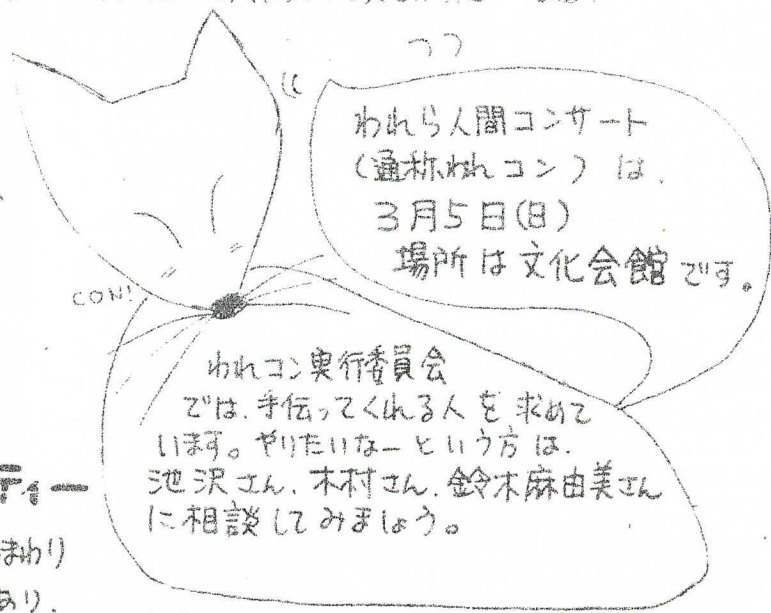 われら人間コンサート
(通称われコン)は、
3月5日(日)
場所は文化会館です。
CON!
われコン実行委員会
では、手伝ってくれる人を求めて
います。やりたいなーという方は、
池沢さん、木村さん、鈴木麻由美さん
に相談してみましょう。
ティー
まわり
あり、